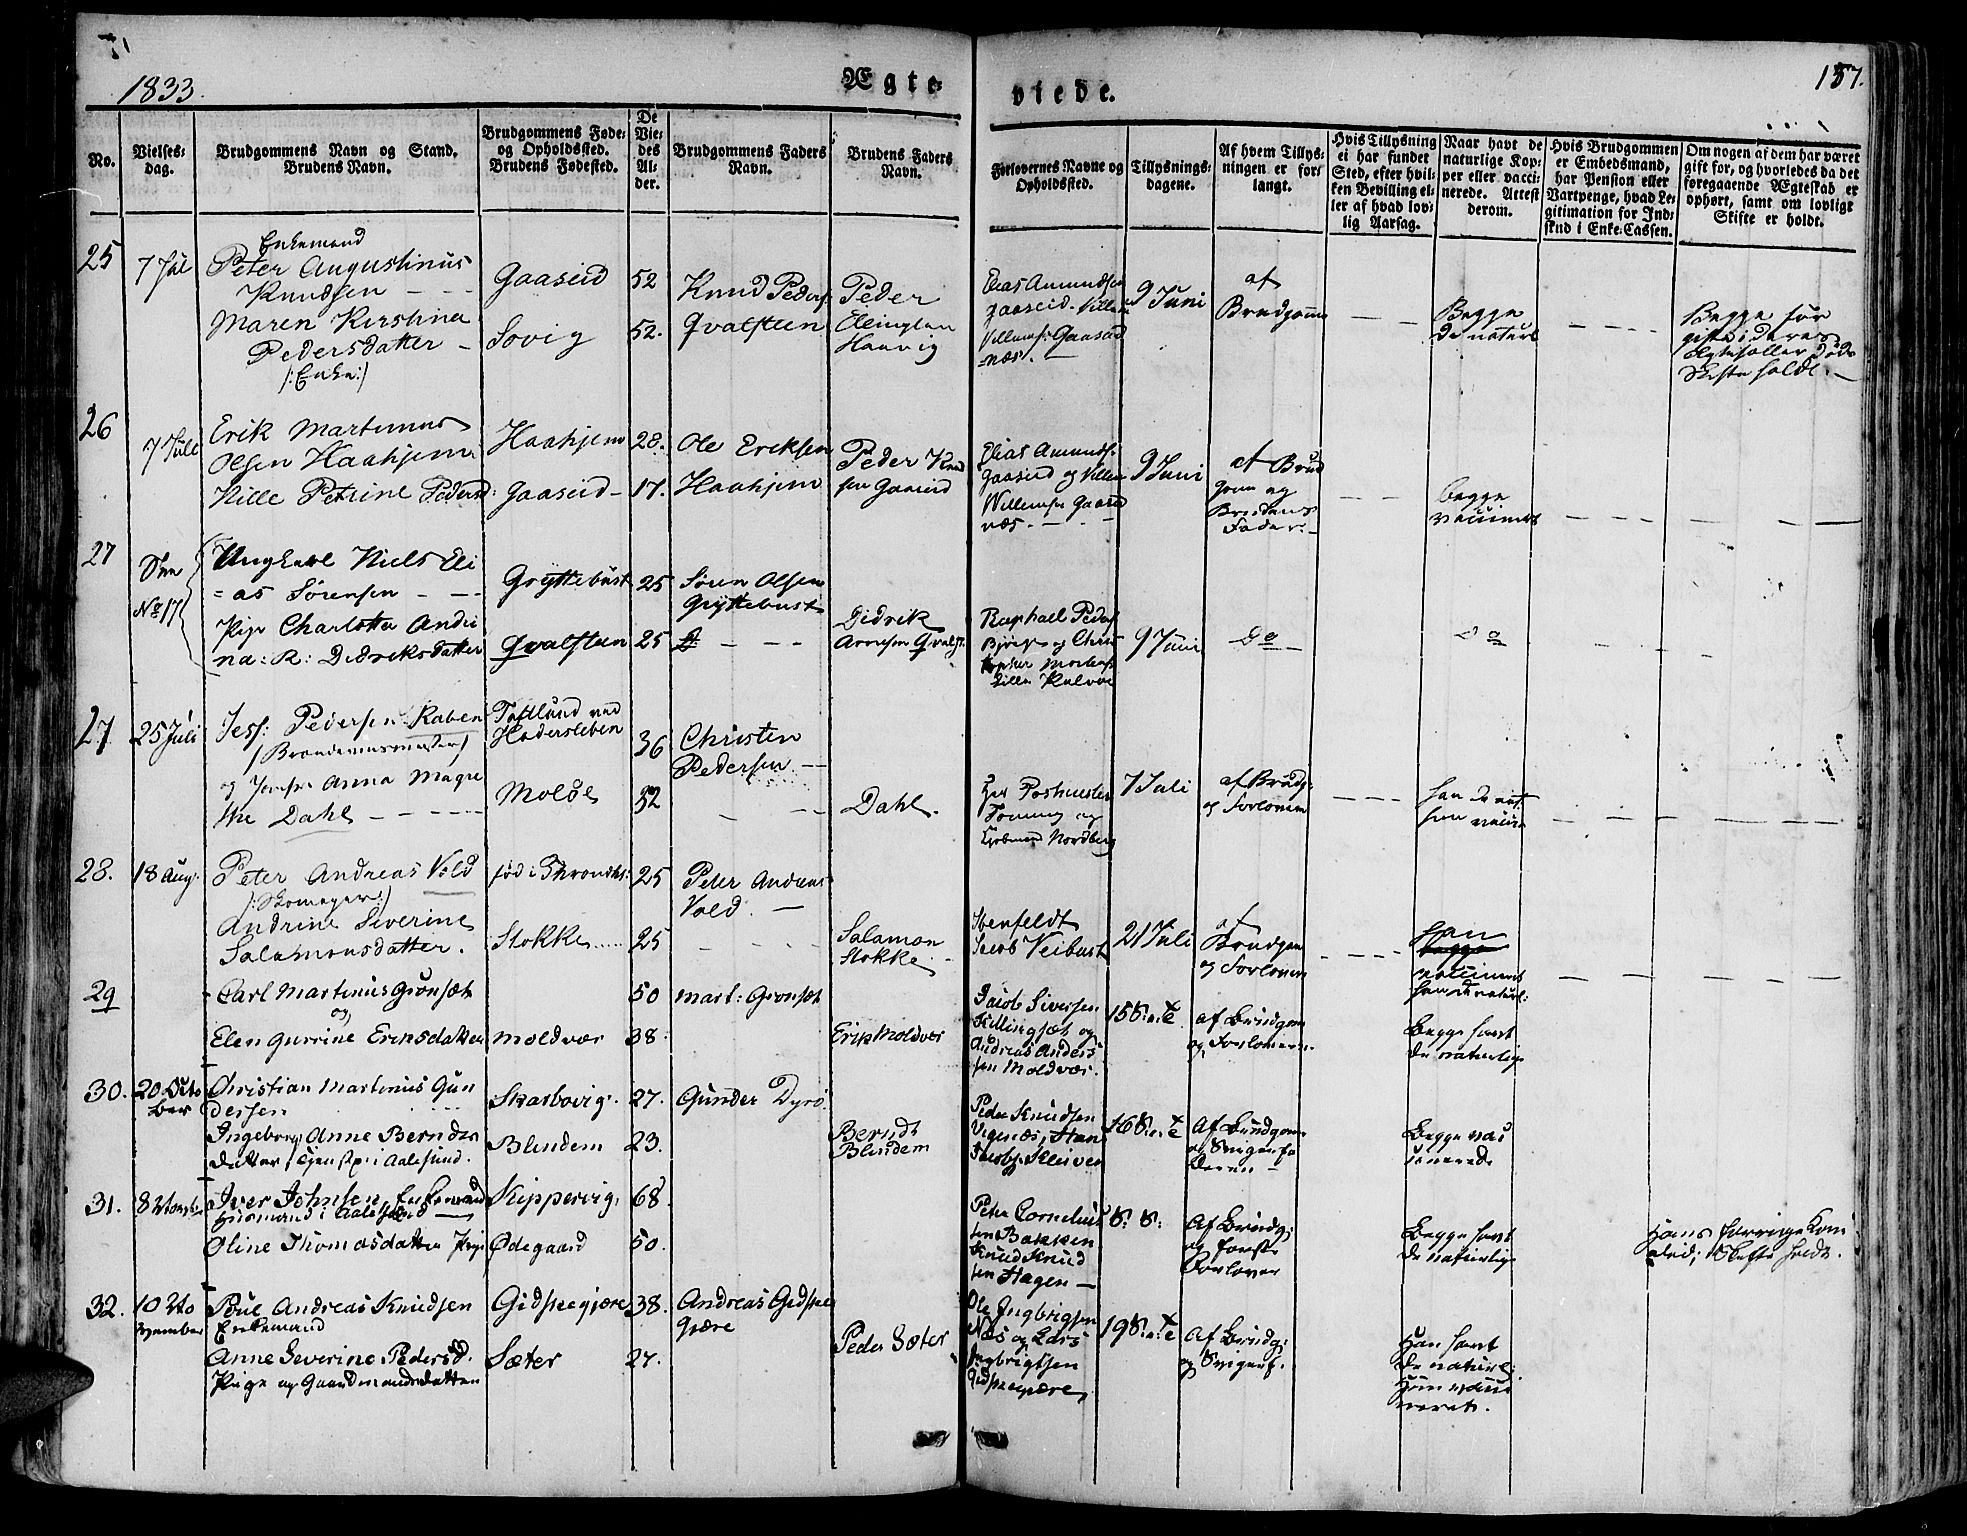 1833.
Ægte-
viede.
157.
No.
Vielses-
dag.
Brudgommens Navn og Stand.
Brudens Navn.
Brudgommens Føde-
og Opholdssted.
Brudens Fødested.
De
Vie-
des
Al-
der.
Brudgommens Faders
Navn.
Brudens Faders
Navn.
Forlovernes Navne og
Opholdssted.
Tillysnings-
dagene.
Af hvem Tillys-
ningen er for-
langt.
Hvis Tillysning
ei har fundet
Sted, efter hvil-
ken Bevilling el-
ler af hvad lov-
lig Aarsag.
Naar havt de
naturlige Kop-
per eller vacci-
nerede. Attest
derom.
Hvis Brudgommen
er Embedsmand,
har Pension eller
Vartpenge, hvad Le-
gitimation for Ind-
skud i Enke-Cassen.
Om nogen af dem har været
gift før, og hvorledes da det
foregaaende Ægteskab er
ophørt, samt om lovligt
Skifte er holdt.
25
7 Jul
Enkemand
Peter Augustinus
Knudsen
Maren Kirstina
Pedersdatter
/:Enke:/
Gaaseid
Sovig
52
52.
Knud Peders
Qvalsteen
Peder
Haavig
Elias Amundsen
Gaaseid
Gaaseid
næs.
9 Juni
af
Brudgomm
Begge
de naturl
Begge før
gifte i deres
Skifte holdt.
26
7 Juli
Erik Martinus
Olsen Haahjem
Nille Petrine Pedersd:
Haahjem
Gaaseid
28.
17.
Ole Eriksen
Haahjem
Peder Knud
sen Gaaseid
Elias Amunds.
Gaaseid og Villum
Willemsen Gaaseid
næs.
9 Juni
af Brud
gom og
Brudens
Fader.
begge
vaccineret
27
No 17
Ungkarl Niels Eli
=as Sørensen
Pige Charlotta Andri
na: R: Didriksdatter
Gryttebust
Qvalsteen
25
25
Søren Olsen
Gryttebust
Didrik
Arnesen Qvalst.
Raphael Peders
og Chris
Kalvøe
9 Juni
Do
Do
27
25 Juli
Jess: Pedersen Raben
og Jomfr Anna Magre
the Dahl
Toftlund ved
Hadersleben
Molde
36
32
Christen
Pedersen
Dahl.
Hr Postmester
og
Kjøbmand Nordberg
7 Juli
af Brudg:
og Forloveren
han de nat.
hun vacin
28.
18 Aug.
Peter Andreas Vold
/:Skomager:/
Andrine Severine
Salamonsdatter.
fød i Throndhj:
Stokke
25
25
Peter Andreas
Vold.
Salamon
Stokke.
Ibenfeldt
Jacob Veibust
21 Juli
af
Brudgom
og Forloveren
han
begge
vaccineret
hun de naturl:
29
Carl Martinus Grønsæt
og
Elen Gurrine Ericsdatter
Moldvær
50
38
Mart: Grønsæt
Erik Moldvær
Jacob Siversen
og
Andreas Anders
sen Moldvær.
af Brudgom
og Forloveren
Begge havt
de naturlige
30.
20 Octo
ber
Christian Martinus Gun
dersen
Ingeborg Anne Berndts
datter, tjen. Pige i Aalesund.
Skarbovig.
Blindem
27.
23.
Gunder Dyrø.
Berndt
Blindem
Peder Knudsen
Vegsnæs, Hans
Jacobs. Kleiven
Af Brudgom
og Svigerfa
deren
Begge vac
cinerede
31.
8 Novbr
Iver Johnsen Enkemand
Huusmand i Aalesund
Oline Thomasdatter Pige
Kippervig,
Ødegaard
68
50.
Peter Cornelius
sen Bakken
Knud Knud
sen Hagen
Af Brudg:
og første
Forlover
Begge havt
de naturlige
Hans forrige Kone
død; Skifte holdt.
32.
10 No
vember
Poul Andreas Knudsen
Enkemand
Anne Severine Pedersd.
Pige og Gaardmandsdatter
Gidskegjære
Sæter
38.
27.
Andreas Gidske
gjære
Peder Sæter
Ole Ingbrigtsen
Næs og Lars
Ingbrigtsen
Gidskegjære,
Af Brudg:
og Svigerf.
Han havt
de naturl.
Hun vacci
neret.